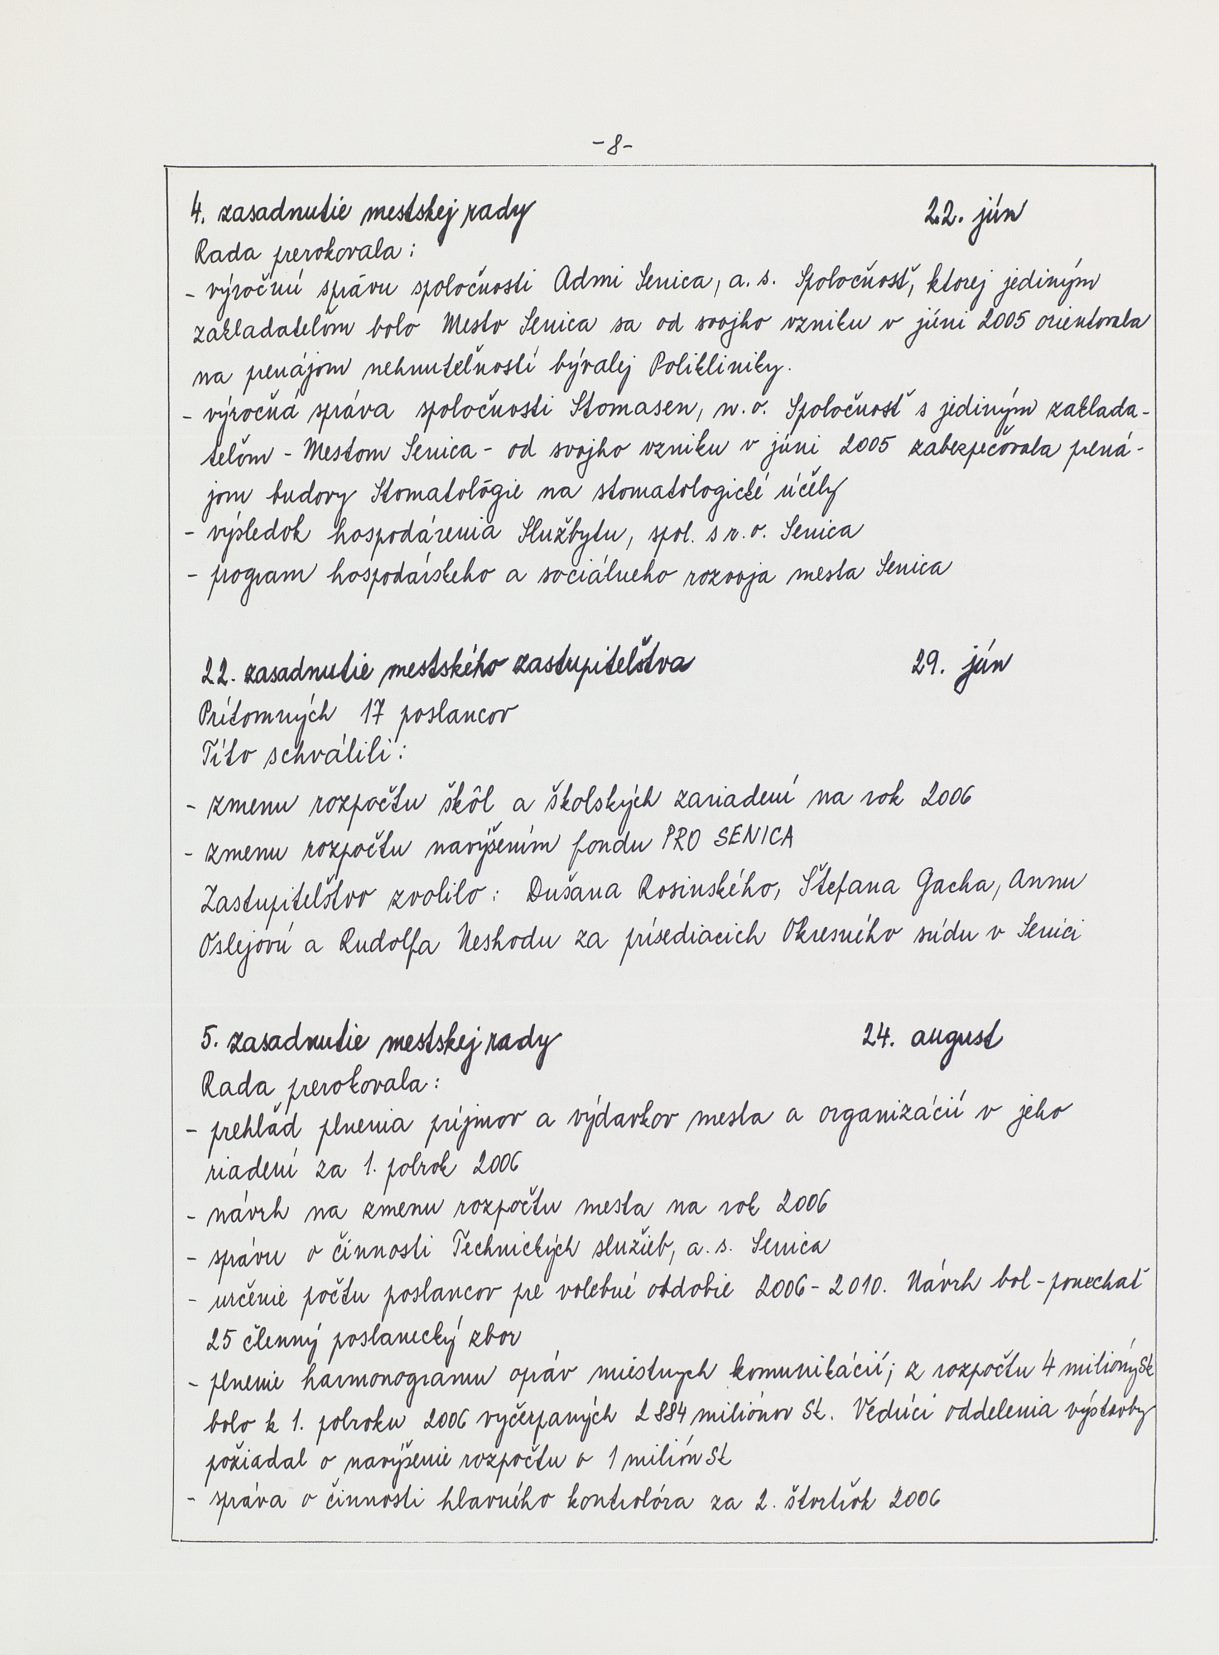 -8-
4. zasadnutie mestskej rady 22. jún
Rada prerokovala:
- výročnú správu spoločnosti Admi Senica, a.s. Spoločnosť, ktorej jediným
zakladateľom bolo Mesto Senica sa od svojho vzniku v júni 2005 orientovala
na prenájom nehnuteľností bývalej Polikliniky.
- výročná správa spoločnosti Stomasen, n.o. Spoločnosť s jediným zaklada-
teľom - Mestom Senica - od svojho vzniku v júni 2005 zabezpečovala prená-
jom budovy Stomatológie na stomatologické účely
- výsledok hospodárenia Službytu, spol. s r.o. Senica
- program hospodárskeho a sociálneho rozvoja mesta Senica
22. zasadnutie mestského zastupiteľstva 29. jún
Prítomných 17 poslancov
Títo schválili:
- zmenu rozpočtu škôl a školských zariadení na rok 2006
- zmenu rozpočtu navýšením fondu PRO SENICA
Zastupiteľstvo zvolilo: Dušana Rosinského, Štefana Gacha, Annu
Oslejovú a Rudolfa Neshodu za prísediacich Okresného súdu v Senici
5. zasadnutie mestskej rady 24. august
Rada prerokovala:
- prehľad plnenia príjmov a výdavkov mesta a organizácií v jeho
riadení za 1. polrok 2006
- návrh na zmenu rozpočtu mesta na rok 2006
- správu o činnosti Technických služieb, a.s. Senica
- určenie počtu poslancov pre volebné obdobie 2006-2010. Návrh bol - ponechať
25 členný poslanecký zbor
- plnenie harmonogramu opráv miestnych komunikácií; z rozpočtu 4 milióny Sk
bolo k 1. polroku 2006 vyčerpaných 2 884 miliónov Sk. Vedúci oddelenia výstavby
požiadal o navýšenie rozpočtu o 1 milión Sk
- správa o činnosti hlavného kontrolóra za 2. štvrťrok 2006